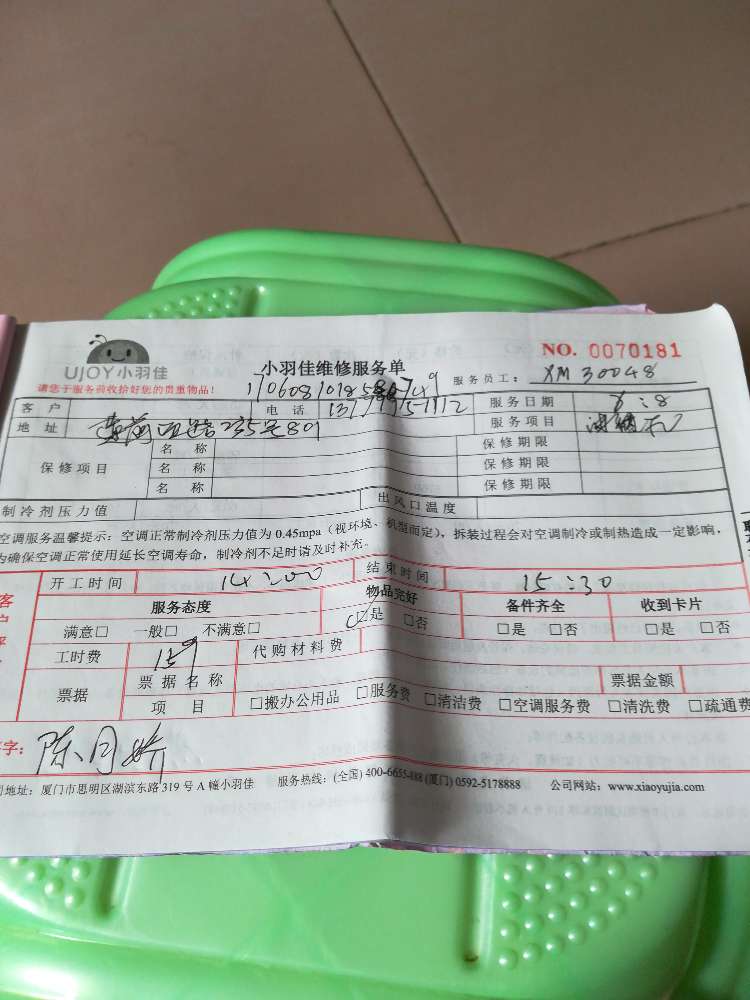 UJOY小羽佳
小羽佳维修服务单
NO. 0070181
请您于服务前收拾好您的贵重物品!
服务员工: XM 30048
客户 电话 服务日期 8:8
地址 服务项目
保修项目 名称 保修期限
名称 保修期限
名称 保修期限
制冷剂压力值 出风口温度
空调服务温馨提示:空调正常制冷剂压力值为 0.45mpa(视环境、机型而定),拆装过程会对空调制冷或制热造成一定影响,
为确保空调正常使用延长空调寿命,制冷剂不足时请及时补充。
开工时间 14:00 结束时间 15:30
服务态度 物品完好 备件齐全 收到卡片
满意□ 一般□ 不满意□ ☑是 □否 □是 □否 □是 □否
工时费 159 代购材料费
票据 票据名称 票据金额
项目 □搬办公用品 □服务费 □清洁费 □空调服务费 □清洗费 □疏通费
字: 陈月娇
地址:厦门市思明区湖滨东路 319 号 A 幢小羽佳 服务热线:(全国) 400-6655-888 (厦门) 0592-5178888 公司网站:www.xiaoyujia.com